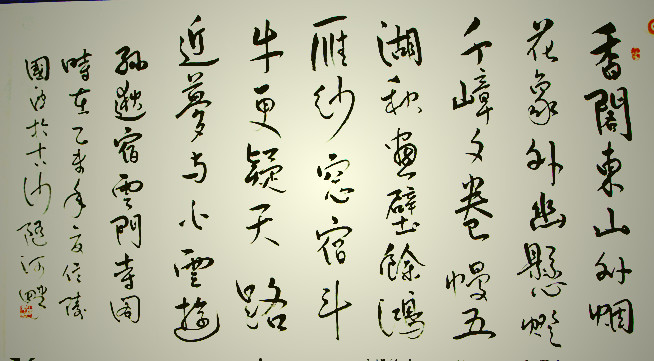 香閣東山外烟
花象外幽懸燈
千嶂夕卷幔五
湖秋畫壁餘鴻
雁紗窓宿斗
牛更疑天路
近夢与白雲遊
孫逖宿雲門寺閣
時在乙未年夏信陵
國於沙隨河畔